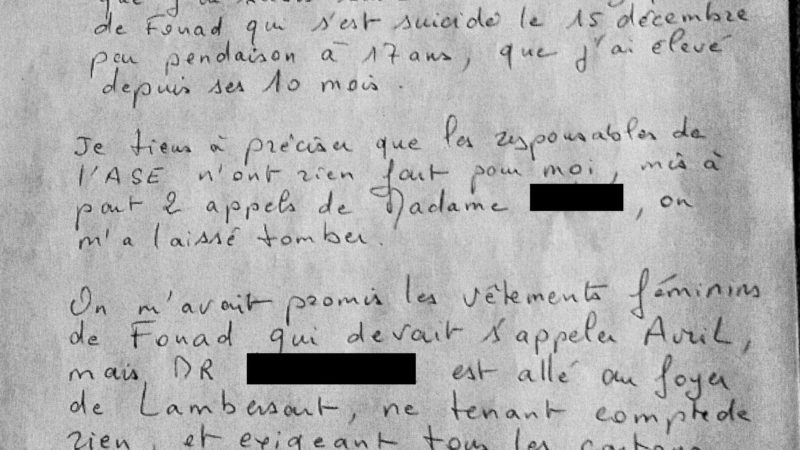 de Fouad qui s'est suicidé le 15 décembre
par pendaison à 17 ans, que j'ai élevé
depuis ses 10 mois.
Je tiens à préciser que les responsables de
l'ASE n'ont rien fait pour moi, mis à
part 2 appels de Madame , on
m'a laissé tomber.
On m'avait promis les vêtements féminins
de Fouad qui devait s'appeler Avril,
mais DR est allé au foyer
de Lambersart, ne tenant compte de
rien, et exigeant tous les cartons